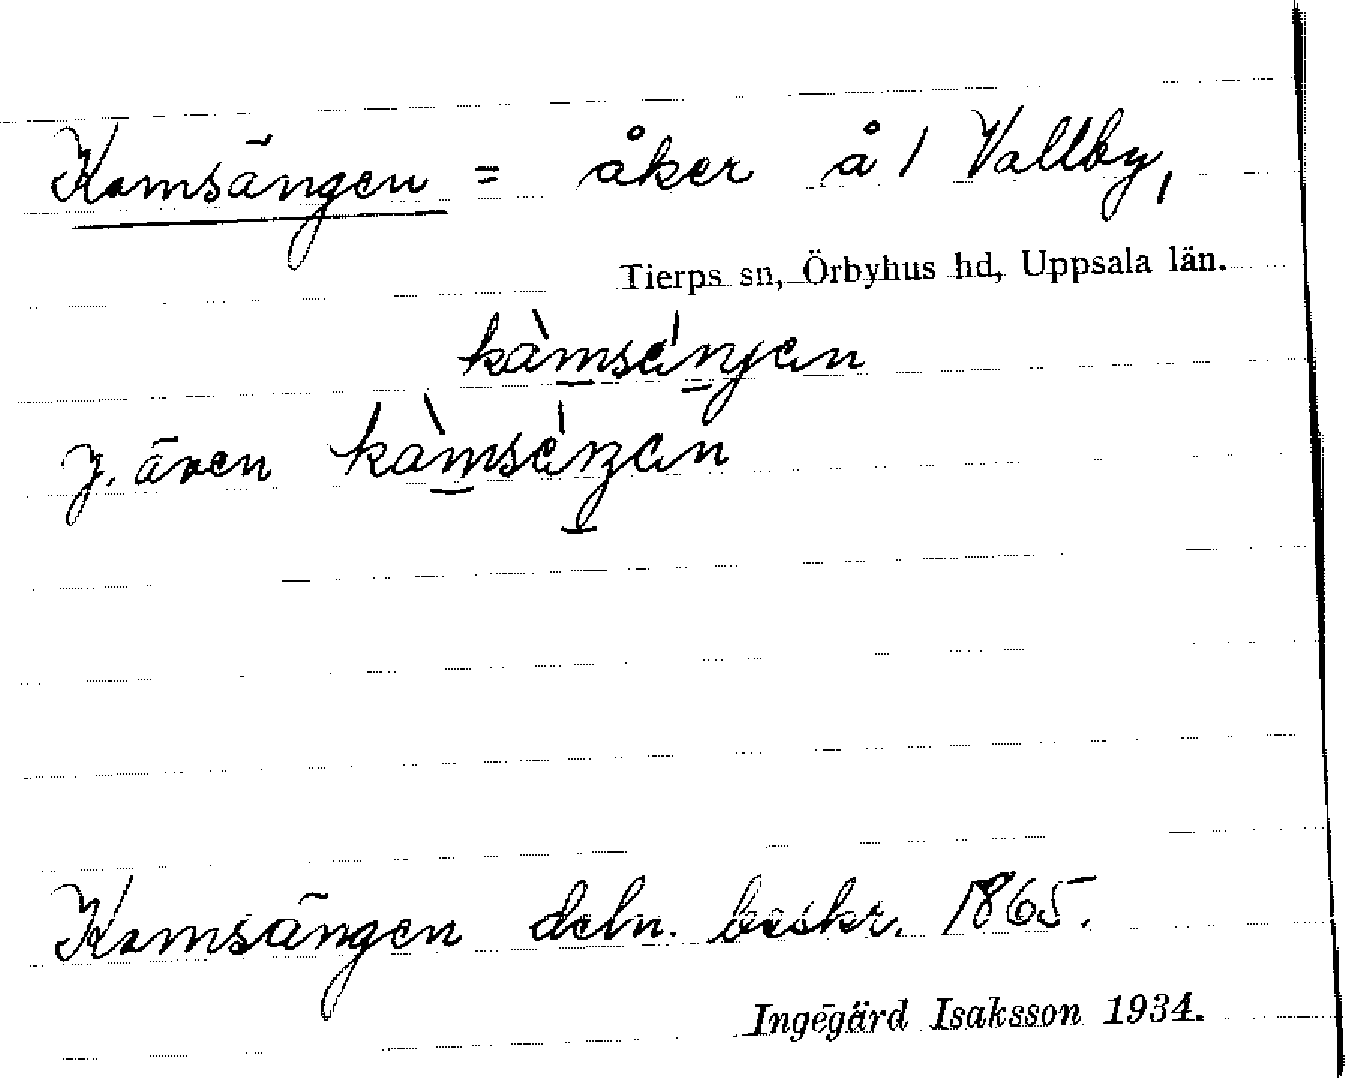 Komsängen = åker å 1 Vallby,
Tierps sn, Örbyhus hd, Uppsala län.
kàmsáŋjan
J. även kàmsáŋan
Komsängen deln. beskr. 1865.
Ingegärd Isaksson 1934.